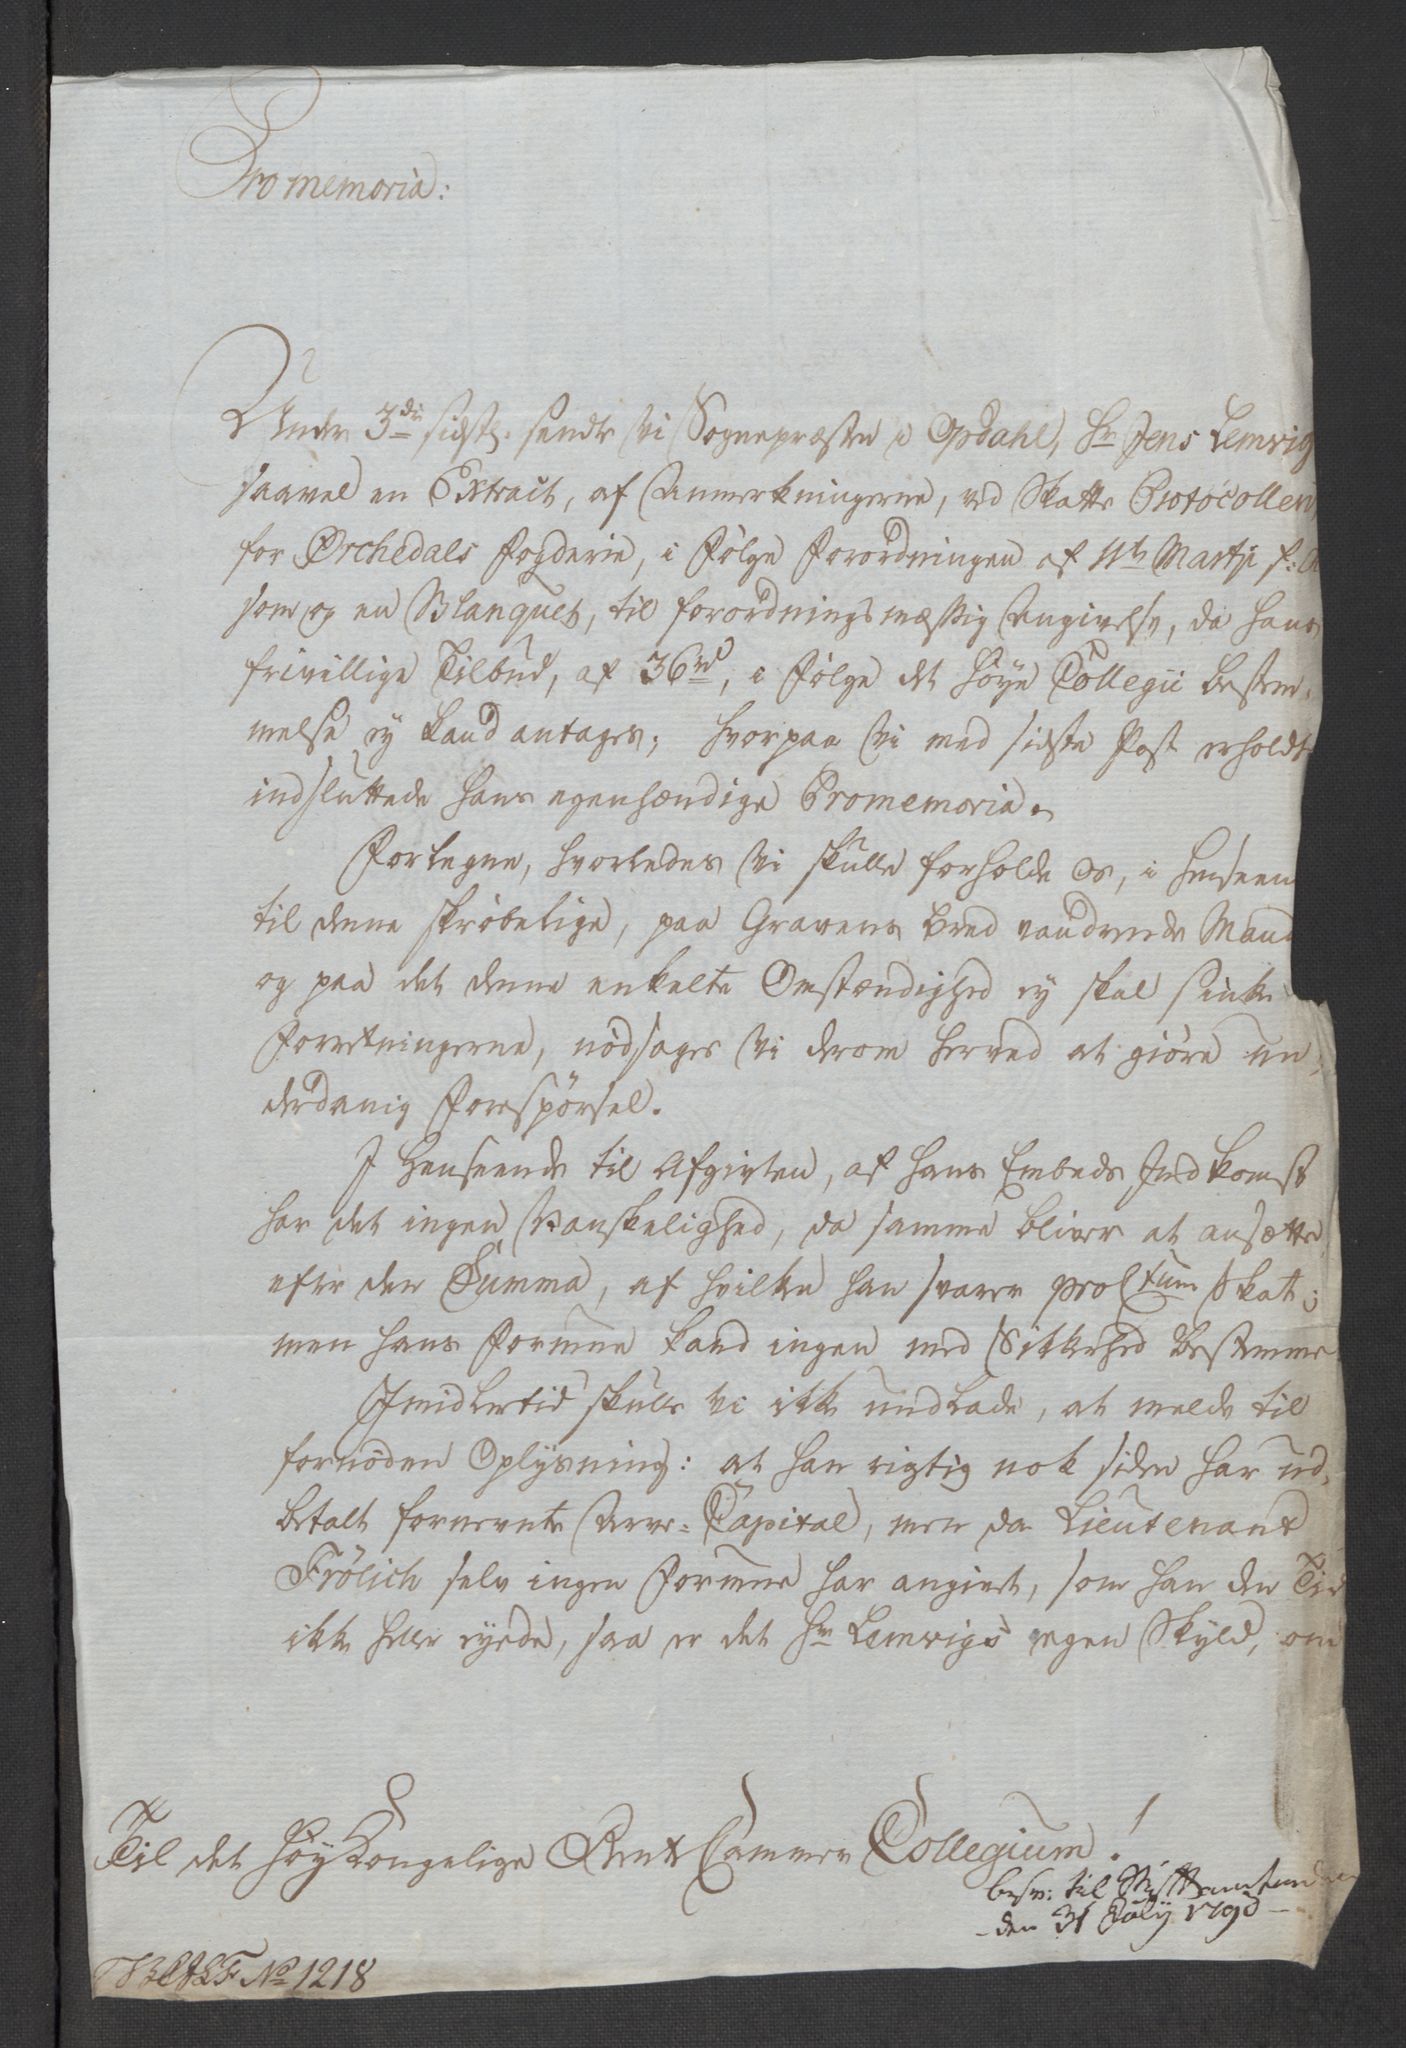 Promemoria:
Under 3die sidstl. sendte Vi Sognepræsten i Opdahl, Hr Jens Lemvig
saavel en Extract, af Anmerkningerne, ved Skatte Protocollen
for Orchedals Fogderie, i Følge Forordningen af 11te Martji f: A
som og en Blanquet, til forordningsmæssig Angivelse, da hans
frivillige Tilbud, af 36 rd, i Følge det høye Collegii bestem-
melse ey kand antages; hvorpaa Vi med sidste Post erholdt
indsluttede hans egenhændige Promemoria.
Forlegne, hvorledes Vi skulle forholde Os, i Henseen
til denne skrøbelige, paa Gravens Bred vandrende Mand
og paa det denne enkelte Omstændighed ey skal sinke
Forretningerne, nødsages Vi derom herved at giøre un-
derdanig Forespørsel.
I Henseende til Afgivten, af hans Embeds Indkomst
har det ingen Vanskelighed, da samme bliver at ansætte
efter den Summa, af hvilken han svarer pro Ctum Skat;
men hans Formue kand ingen med Sikkerhed bestemme
Imidlertid skulle Vi ikke undlade, at melde til
fornøden Oplysning: at han rigtig nok siden har ud-
betalt fornevnte Arve-Capital, men da Lieutenant
Frölich selv ingen Formue har angivet, som han den Tid
ikke heller eyede, saa er det Hr Lemvigs egen Skyld, om
Til det høy Kongelige Rente Cammer Collegium!
besv: til Stiftamtmanden
den 31 July 1790
No 1218